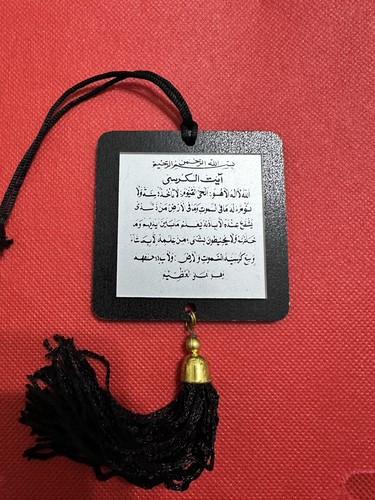 بسم الله الرحمن الرحيم
آيت الكرسى
الله لا اله الا هو الحى القيوم لا تأخذه سنة ولا
نوم له ما فى السموت وما فى الارض من ذا الذى
يشفع عنده الا باذنه يعلم ما بين ايديهم وما
خلفهم ولا يحيطون بشىء من علمه الا بما شاء
وسع كرسيه السموت والارض ولا يؤده حفظهما
وهو العلى العظيم